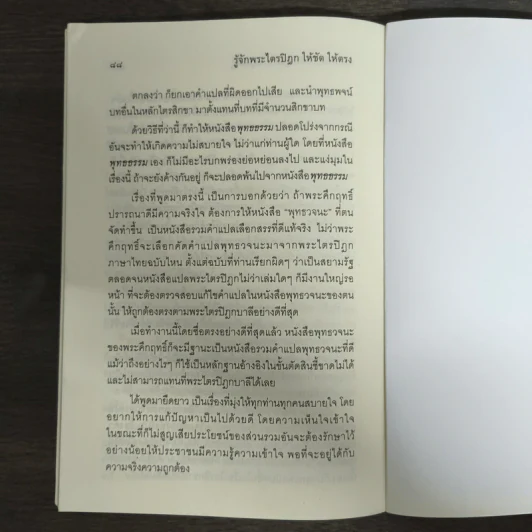 ๘๘
รู้จักพระไตรปิฎก ให้ชัด ให้ตรง
ตกลงว่า ก็ยกเอาคำแปลที่ผิดออกไปเสีย และนำพุทธพจน์
บทอื่นในหลักไตรสิกขา มาตั้งแทนที่บทที่มีจำนวนสิกขาบท
ด้วยวิธีที่ว่านี้ ก็ทำให้หนังสือพุทธธรรม ปลอดโปร่งจากกรณี
อันจะทำให้เกิดความไม่สบายใจ ไม่ว่าแก่ท่านผู้ใด โดยที่หนังสือ
พุทธธรรม เอง ก็ไม่มีอะไรบกพร่องย่อหย่อนลงไป และแง่มุมใน
เรื่องนี้ ถ้าจะยังค้างกันอยู่ ก็จะปลอดพ้นไปจากหนังสือ พุทธธรรม
เรื่องที่พูดมาตรงนี้ เป็นการบอกด้วยว่า ถ้าพระคึกฤทธิ์
ปรารถนาดีมีความจริงใจ ต้องการให้หนังสือ “พุทธวจนะ” ที่ตน
จัดทำขึ้น เป็นหนังสือรวมคำแปลเลือกสรรที่ดีแท้จริง ไม่ว่าพระ
คึกฤทธิ์จะเลือกคัดคำแปลพุทธวจนะมาจากพระไตรปิฎก
ภาษาไทยฉบับไหน ตั้งแต่ฉบับที่ท่านเรียกผิดๆ ว่าเป็นสยามรัฐ
ตลอดจนหนังสือแปลพระไตรปิฎกไม่ว่าเล่มใดๆ ก็มีงานใหญ่รอ
หน้า ที่จะต้องตรวจสอบแก้ไขคำแปลในหนังสือพุทธวจนะของตน
นั้น ให้ถูกต้องตรงตามพระไตรปิฎกบาลีอย่างดีที่สุด
เมื่อทำงานนี้โดยซื่อตรงอย่างดีที่สุดแล้ว หนังสือพุทธวจนะ
ของพระคึกฤทธิ์ก็จะมีฐานะเป็นหนังสือรวมคำแปลพุทธวจนะที่ดี
แม้ว่าถึงอย่างไรๆ ก็ใช้เป็นหลักฐานอ้างอิงในขั้นตัดสินชี้ขาดไม่ได้
และไม่สามารถแทนที่พระไตรปิฎกบาลีได้เลย
ได้พูดมายืดยาว เป็นเรื่องที่มุ่งให้ทุกท่านทุกคนสบายใจ โดย
อยากให้การแก้ปัญหาเป็นไปด้วยดี โดยความเห็นใจเข้าใจ
ในขณะที่ก็ไม่สูญเสียประโยชน์ของส่วนรวมอันจะต้องรักษาไว้
อย่างน้อยให้ประชาชนมีความรู้ความเข้าใจ พอที่จะอยู่ได้กับ
ความจริงความถูกต้อง